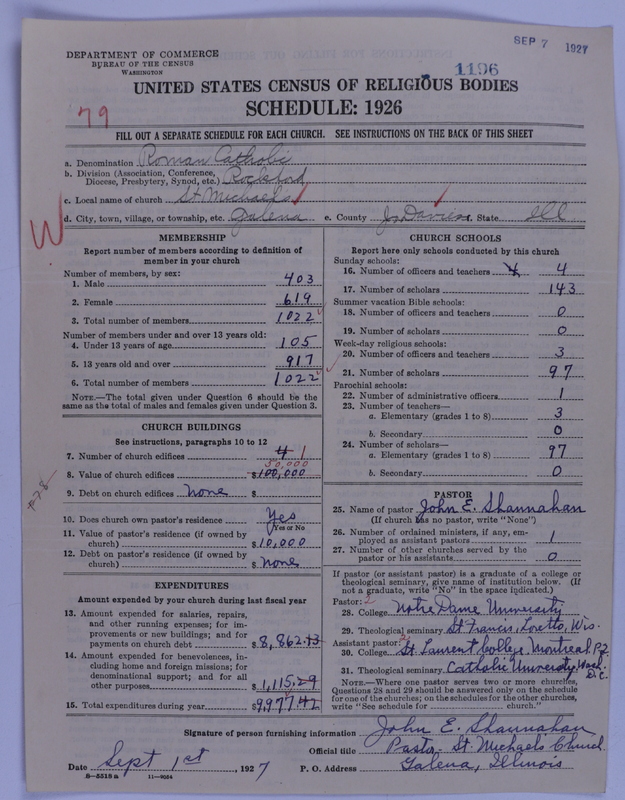 SEP 7 1927
DEPARTMENT OF COMMERCE
BUREAU OF THE CENSUS
WASHINGTON
1196
UNITED STATES CENSUS OF RELIGIOUS BODIES
SCHEDULE: 1926
79
FILL OUT A SEPARATE SCHEDULE FOR EACH CHURCH. SEE INSTRUCTIONS ON THE BACK OF THIS SHEET
a. Denomination Roman Catholic
b. Division (Association, Conference,
Diocese, Presbytery, Synod, etc.) Rockford
c. Local name of church St Michaels
d. City, town, village, or township, etc. Galena e. County Jo Daviess f. State Ill
W
MEMBERSHIP
Report number of members according to definition of
member in your church
Number of members, by sex:
1. Male 403
2. Female 619
3. Total number of members 1022
Number of members under and over 13 years old:
4. Under 13 years of age 105
5. 13 years old and over 917
6. Total number of members 1022
NOTE.—The total given under Question 6 should be the
same as the total of males and females given under Question 3.
CHURCH BUILDINGS
See instructions, paragraphs 10 to 12
7. Number of church edifices 4 1
50,000
8. Value of church edifices $100,000
9. Debt on church edifices none $
10. Does church own pastor's residence Yes
Yes or No
11. Value of pastor's residence (if owned by
church) $10,000
12. Debt on pastor's residence (if owned by
church) $ none
EXPENDITURES
Amount expended by your church during last fiscal year
13. Amount expended for salaries, repairs,
and other running expenses; for im-
provements or new buildings; and for
payments on church debt $8,862.13
14. Amount expended for benevolences, in-
cluding home and foreign missions; for
denominational support; and for all
other purposes $1,115.29
15. Total expenditures during year $9977.42
CHURCH SCHOOLS
Report here only schools conducted by this church
Sunday schools:
16. Number of officers and teachers 4 4
17. Number of scholars 143
Summer vacation Bible schools:
18. Number of officers and teachers 0
19. Number of scholars 0
Week-day religious schools:
20. Number of officers and teachers 3
21. Number of scholars 97
Parochial schools:
22. Number of administrative officers 1
23. Number of teachers—
a. Elementary (grades 1 to 8) 3
b. Secondary 0
24. Number of scholars—
a. Elementary (grades 1 to 8) 97
b. Secondary 0
PASTOR
25. Name of pastor John E. Shannahan
(If church has no pastor, write "None")
26. Number of ordained ministers, if any, em-
ployed as assistant pastors 1
27. Number of other churches served by the
pastor or his assistants 0
If pastor (or assistant pastor) is a graduate of a college or
theological seminary, give name of institution below. (If
not a graduate, write "No" in the space indicated.)
Pastor: 2
28. College Notre Dame University
29. Theological seminary St Francis, Loretto, Wis.
Assistant pastor: 2
30. College St. Laurent College Montreal P.Q.
31. Theological seminary Catholic University, Wash. D.C.
NOTE.—Where one pastor serves two or more churches,
Questions 28 and 29 should be answered only on the schedule
for one of the churches; on the schedules for the other churches,
write "See schedule for church."
Signature of person furnishing information John E. Shannahan
Official title Pastor - St. Michaels' Church
Date Sept 1st, 1927 P. O. Address Galena, Illinois
8—5518 a 11—9054